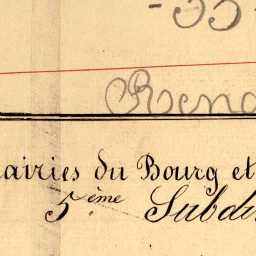 -55-
Rend
airies du Bourg et
5.ème Subdi